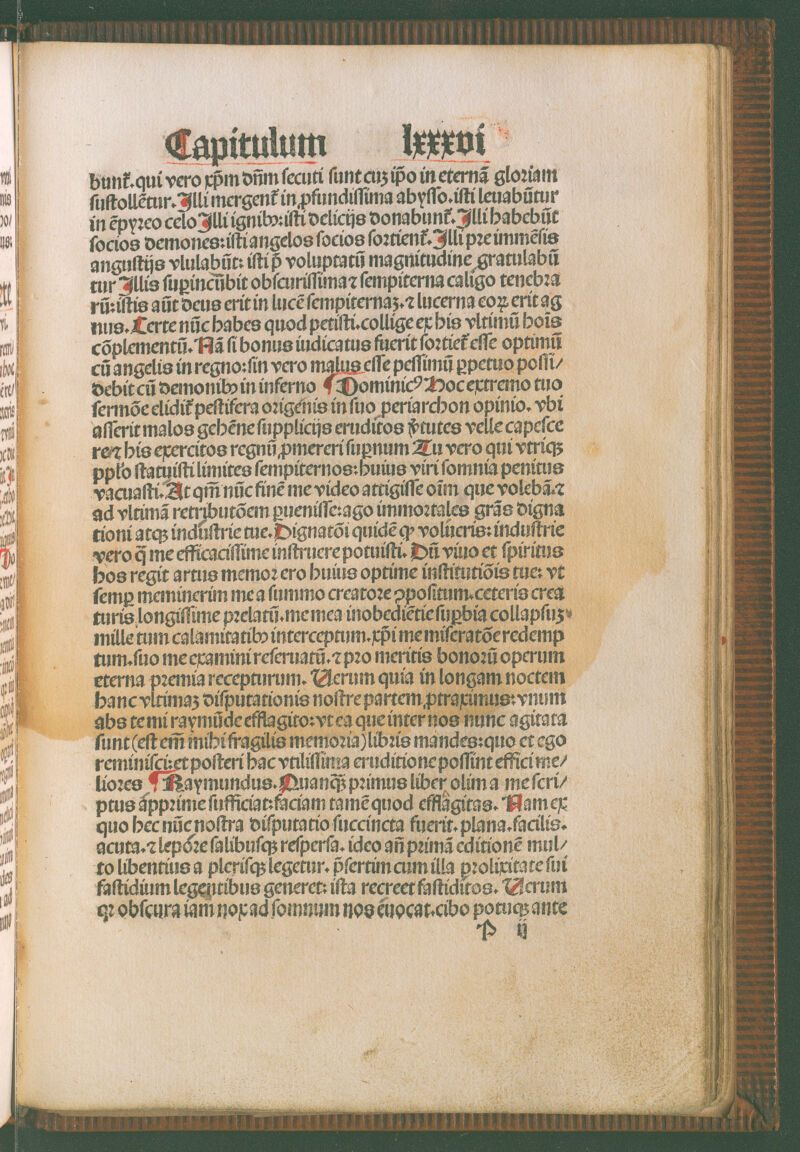 Capitulum lxxxvi
bunt᷑.qui vero xp̄m dñm secuti sunt cuꝫ ip̄o in eternã gloꝛiam
sustollẽtur.Illi mergent᷑ in ꝓfundissima abysso.isti leuabũtur
in ẽpyreo celo Illi ignibꝰ:isti delicijs donabunt᷑.Illi habebũt
socios demones:isti angelos socios soꝛtient᷑.Illi pꝛe immẽsis
angustijs vlulabũt: isti p̄ voluptatũ magnitudine gratulabũ
tur Illis suꝑincũbit obscurissima ⁊ sempiterna caligo tenebꝛa
rũ:istis aũt deus erit in lucẽ sempiternaꝫ.⁊ lucerna eoꝝ erit ag
nus. Certe nũc habes quod petisti.collige ex his vltimũ hoĩs
cõplementũ. Nã si bonus iudicatus fuerit soꝛtiet᷑ esse optimũ
cũ angelis in regno:sin vero malus esse pessimũ ꝑpetuo possi/
debit cũ demonibꝰ in inferno ¶ Dominicꝰ Hoc extremo tuo
sermõe elidit᷑ pestifera oꝛigenis in suo periarchon opinio. vbi
asserit malos gehẽne supplicijs eruditos v̓tutes velle capesce
re:⁊ his exercitos regnũ ꝓmereri suꝑnum Tu vero qui vtriqꝫ
pp̄lo statuisti limites sempiternos:huius viri somnia penitus
vacuasti. At qm̃ nũc finẽ me video attigisse oĩm que volebã.⁊
ad vltimã retributõem ꝑuenisse:ago immoꝛtales grãs digna
tioni atqꝫ industrie tue. Dignatõi quidẽ qꝫ volueris: industrie
vero q̃ me efficacissime instruere potuisti. Dũ viuo et spiritus
hos regit artus memoꝛ ero huius optime institutiõis tue: vt
semꝑ meminerim me a summo creatoꝛe ꝯpositum.ceteris crea
turis longissime pꝛelatũ.me mea inobediẽtie suꝑbia collapsuꝫ
mille tum calamitatibꝰ interceptum.xp̄i me miseratõe redemp
tum.suo me examini reseruatũ.⁊ pꝛo meritis bonoꝛũ operum
eterna pꝛemia recepturum. Uerum quia in longam noctem
hanc vltimaꝫ disputationis nostre partem ꝓtraximus:vnum
abs te mi raymũde efflagito:vt ea que inter nos nunc agitata
sunt (est em̃ mihi fragilis memoꝛia) libꝛis mandes:quo et ego
reminisci:et posteri hac vtilissima eruditione possint effici me/
lioꝛes ¶ Raymundus. Quanqꝫ pꝛimus liber olim a me scri/
ptus appꝛime sufficiat:faciam tamẽ quod efflagitas. Nam ex
quo hec nũc nostra disputatio succincta fuerit.plana.facilis.
acuta.⁊ lepoꝛe salibusqꝫ respersa. ideo añ pꝛimã editionẽ mul/
to libentius a plerisqꝫ legetur. p̄sertim cum illa pꝛolixitate sui
fastidium legentibus generet: ista recreet fastiditos. Uerum
qꝛ obscura iam nox ad somnum nos euocat.cibo potuqꝫ ante
P ij